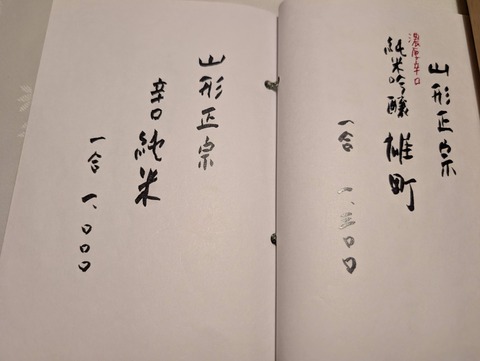 山形正宗
濃厚辛口
純米吟醸 雄町
一合 一、三〇〇
山形正宗
辛口純米
一合 一、〇〇〇